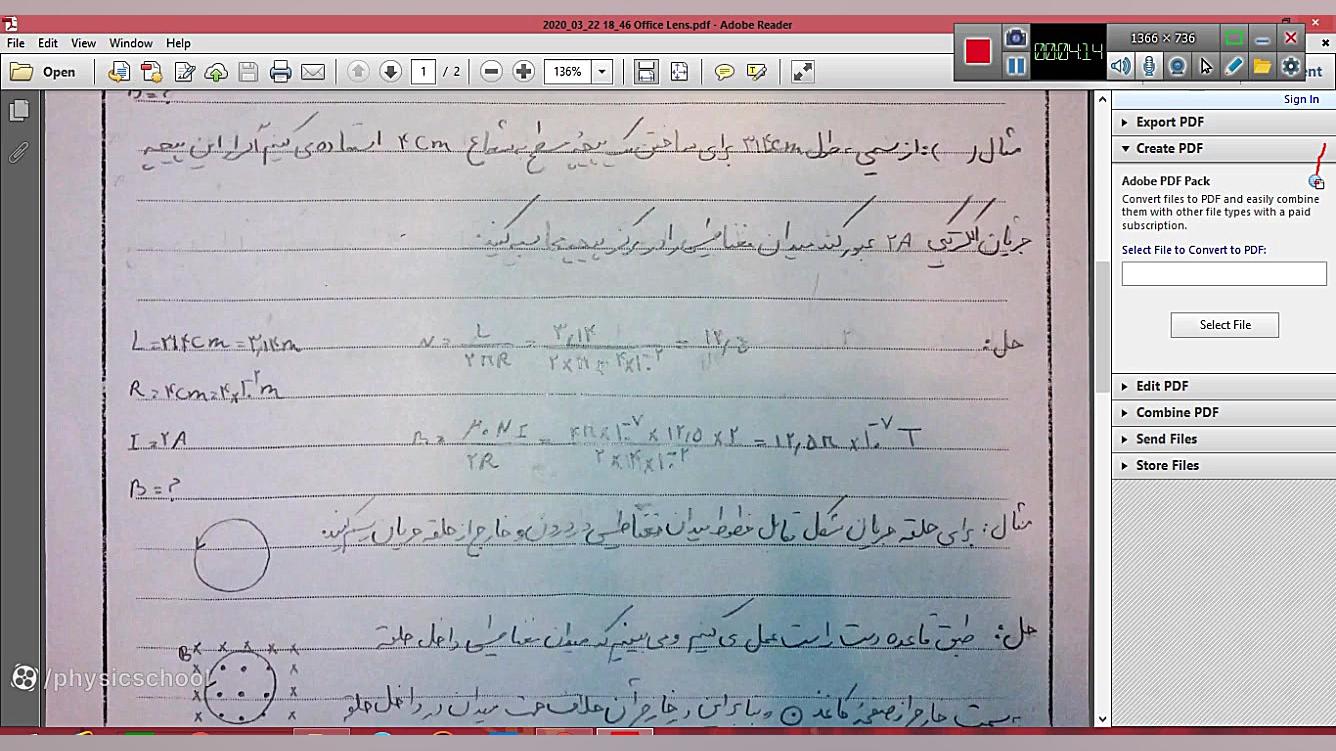 2020_03_22 18_46 Office Lens.pdf - Adobe Reader
File Edit View Window Help
1366 × 736
00:04:14
Open
1 / 2
136%
Sign In
Export PDF
Create PDF
Adobe PDF Pack
Convert files to PDF and easily combine
them with other file types with a paid
subscription.
Select File to Convert to PDF:
Select File
Edit PDF
Combine PDF
Send Files
Store Files
B=?
مثال ): از سیمی به طول ۳۱۴cm برای ساختن یک پیچه مسطح به شعاع ۴cm استفاده می کنیم اگر از این پیچه
جریان الکتریکی ۲A عبور کند میدان مغناطیسی را در مرکز پیچه محاسبه کنید.
حل:
L=۳۱۴cm=۳,۱۴m
R=۴cm=۴×۱۰⁻²m
I=۲A
B=?
N = L/۲πR = ۳,۱۴/۲×π×۴×۱۰⁻² = ۱۲,۵
B = μ۰NI/۲R = ۴π×۱۰⁻⁷×۱۲,۵×۲/۲×۴×۱۰⁻² = ۱۲,۵π×۱۰⁻⁷ T
مثال: برای حلقه جریان شکل مقابل خطوط میدان مغناطیسی در درون و خارج از حلقه جریان رسم کنید.
حل: طبق قاعده دست راست عمل می کنیم و می بینیم که میدان مغناطیسی داخل حلقه
به سمت خارج از صفحه کاغذ ⊙ و بنابراین در خارج آن خلاف جهت میدان در داخل حلقه
B
/physicschool